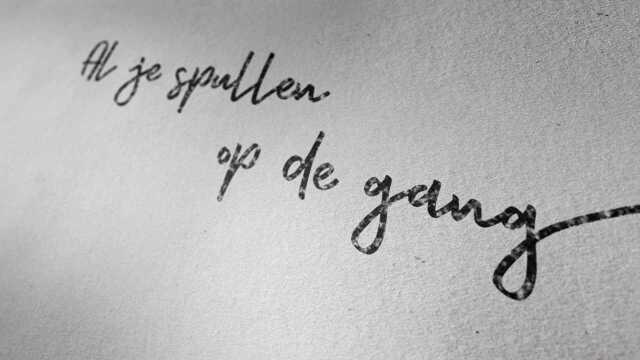 Al je spullen
op de gang